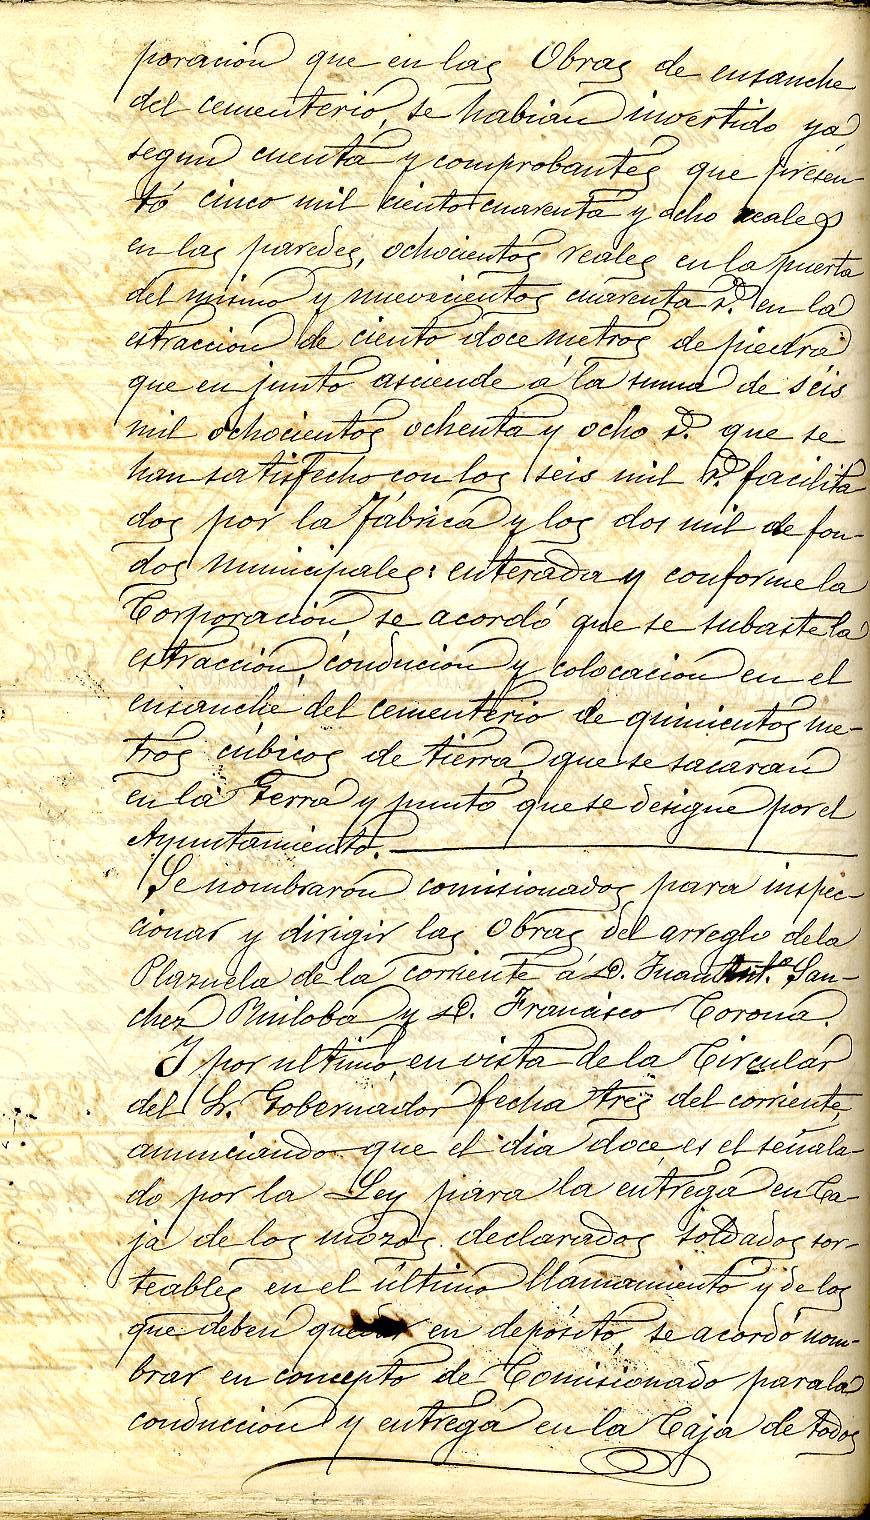 poración que en las Obras de ensanche
del cementerio, se habian invertido ya
segun cuenta y comprobantes que presen-
tó cinco mil ciento cuarenta y ocho reales
en las paredes, ochocientos reales en la puerta
del mismo y nuevecientos cuarenta r.s en la
estraccion de ciento doce metros de piedra
que en junto asciende á la suma de seis
mil ochocientos ochenta y ocho r.s que se
han satisfecho con los seis mil r.s facilita
dos por la Fábrica y los dos mil de fon-
dos municipales: enterada y conforme la
Corporación, se acordó que se subaste la
estracción, condución y colocación en el
ensanche del cementerio de quinientos me-
tros cúbicos de tierra, que se sacaran
en la Gerra y punto que se designe por el
Ayuntamiento.
Se nombraron comisionados para inspec-
cionar y dirigir las Obras del arreglo de la
Plazuela de la corriente á D. Juan Ant.º San-
chez Ruiloba y D. Francisco Corona.
Y por ultimo, en vista de la Circular
del Sr. Gobernador fecha tres del corriente,
anunciando que el dia doce es el señala-
do por la Ley para la entrega en Ca-
ja de los mozos declarados soldados sor-
teables en el último llamamiento y de los
que deben quedar en depósito, se acordó nom-
brar en concepto de Comisionado para la
conducción y entrega en la Caja de todos